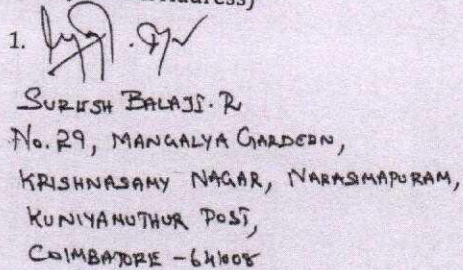 Address)
1.
SURESH BALAJI. R
No. 29, MANGALYA GARDEDN,
KRISHNASAMY NAGAR, NARASIMAPURAM,
KUNIYAMUTHUR POST,
COIMBATORE - 641008